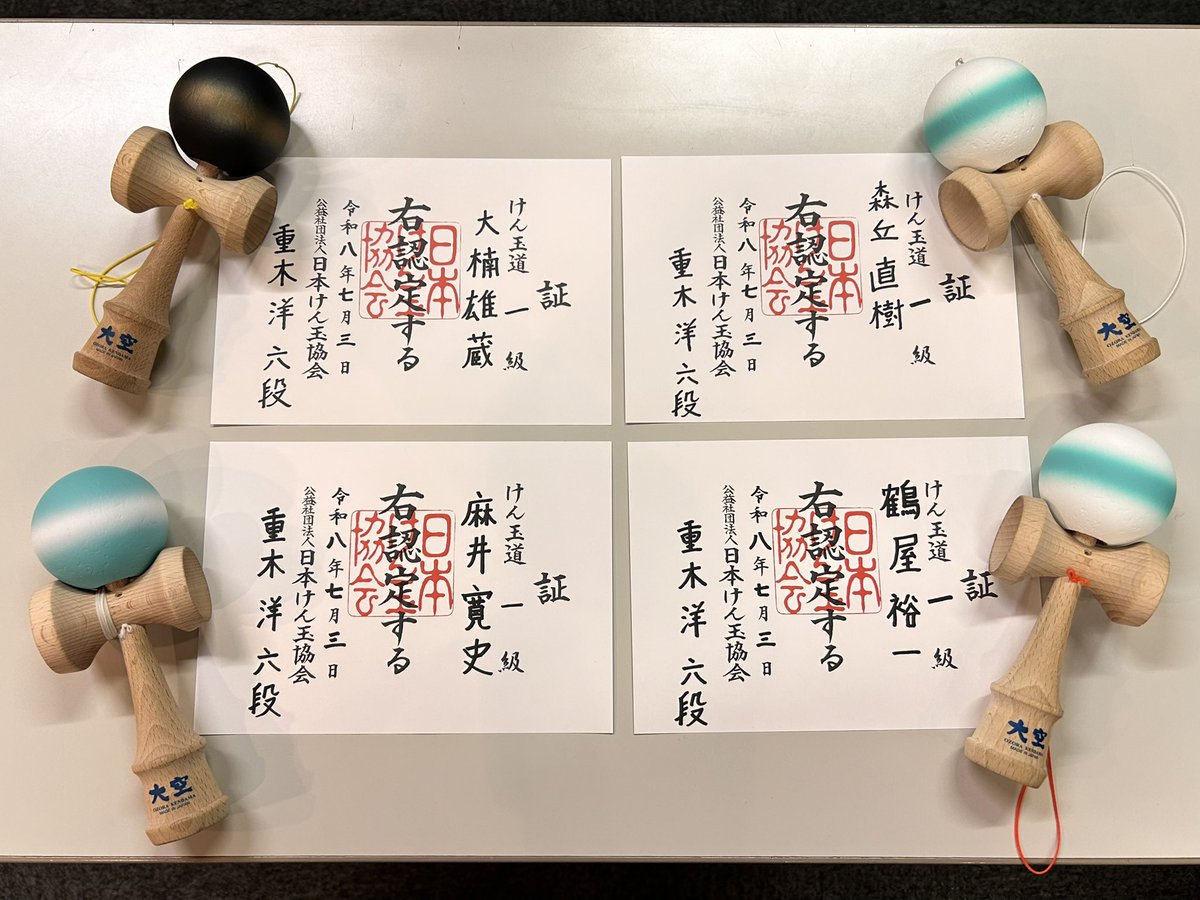 証
けん玉道 一級
大楠雄蔵
右認定する
令和八年七月三日
公益社団法人日本けん玉協会
重木洋六段
日本
協会
証
けん玉道 一級
森丘直樹
右認定する
令和八年七月三日
公益社団法人日本けん玉協会
重木洋六段
日本
協会
証
けん玉道 一級
麻井寛史
右認定する
令和八年七月三日
公益社団法人日本けん玉協会
重木洋六段
日本
協会
証
けん玉道 一級
鶴屋裕一
右認定する
令和八年七月三日
公益社団法人日本けん玉協会
重木洋六段
日本
協会
大空
OZORA KENDAMA
MADE IN JAPAN
大空
OZORA KENDAMA
MADE IN JAPAN
大空
OZORA KENDAMA
MADE IN JAPAN
大空
OZORA KENDAMA
MADE IN JAPAN